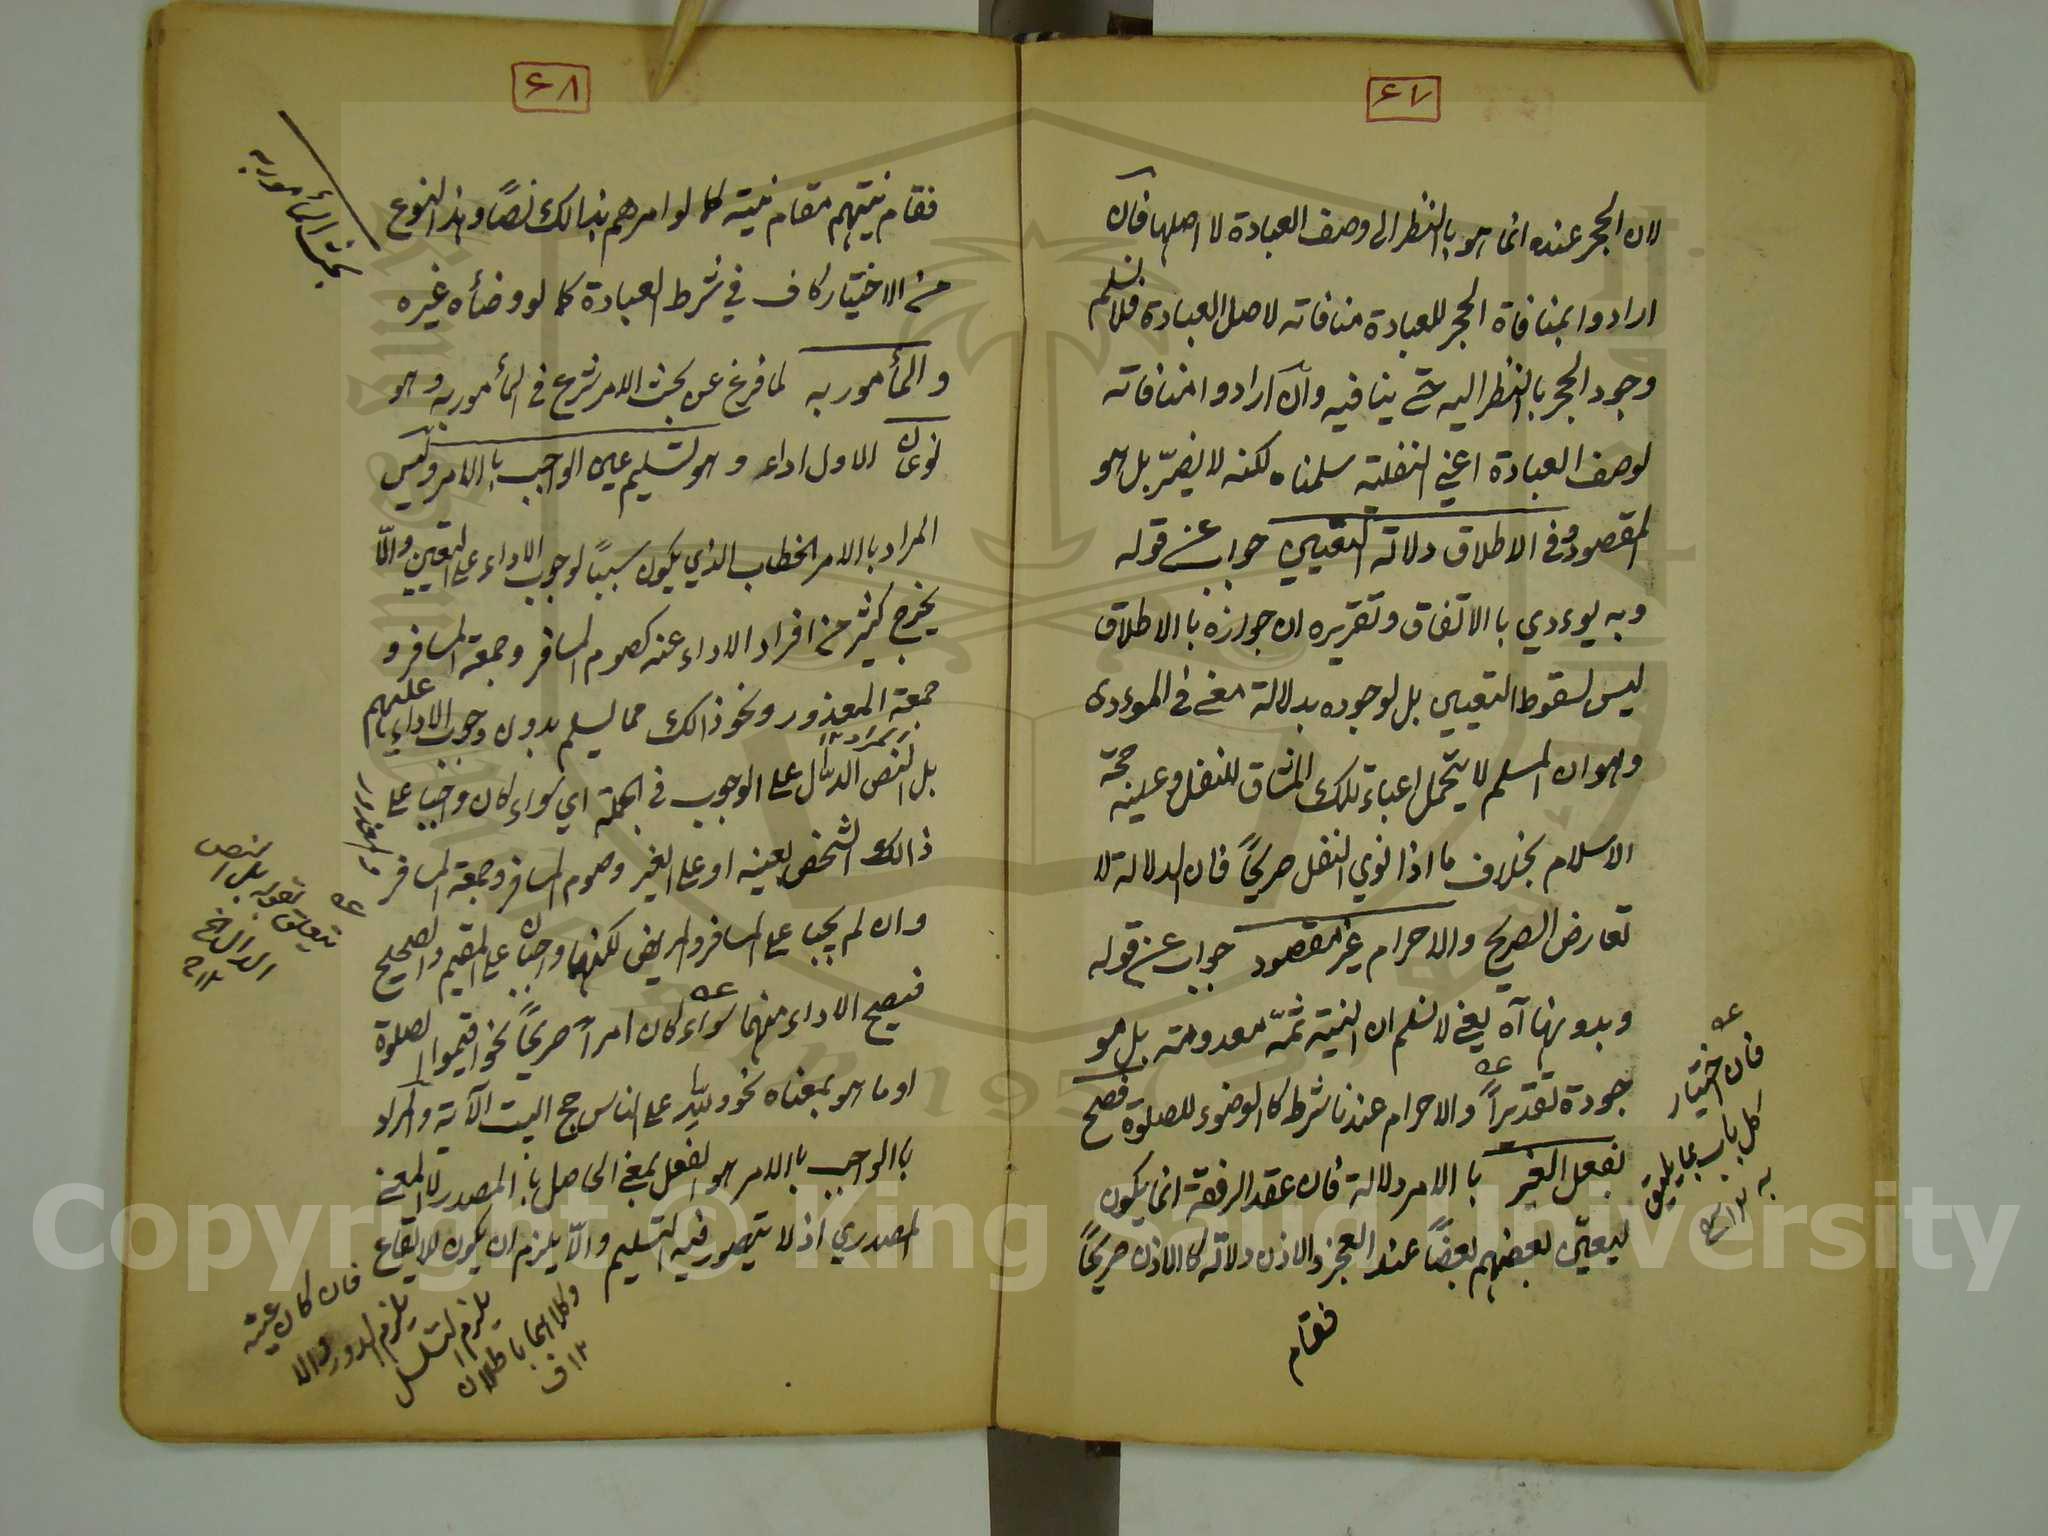 ٦٧
لان الحجر عنده انما هو بالنظر الى وصف العبادة لا اصلها فان
ارادوا بمنافاة الحجر للعبادة منافاته لاصل العبادة فلا نسلم
وجود الحجر بالنظر اليه حتے ينافيه وان ارادوا منافاته
لوصف العبادة اعنے النفلية سلمناه لكنه لا يضرّ بل هو
المقصود وفى الاطلاق دلالة التعيين جواب عن قوله
وبه يوءدي بالاتفاق وتقريره ان جوازه بالاطلاق
ليس لسقوط التعيين بل لوجوده بدلالة معنے فى الموءدى
وهو ان المسلم لا يتحمل اعباء تلك المشاق للنفل وعليه حجة
الاسلام بخلاف ما اذا نوي النفل صريحاً فان الدلالة لا
تعارض الصريح والاحرام غير مقصود جواب عن قوله
وبدونها آه يعنے لا نسلم ان النية ثمّة معدومة بل مو
جودة تقديراً والاحرام عندنا شرط كالوضوء للصلوة فصح
بفعل الغير بالامر دلالة فان عقد الرفقة انما يكون
ليعيّن بعضهم بعضاً عند العجز والاذن دلالة كالاذن صريحاً
فقام
فان اختيار
كل باب بما يليق
به ١٢
٦٨
فقام نيتهم مقام نيته كما لو امرهم بذالك نصاً وهذا النوع
من الاختيار كاف في شرط العبادة كما لو وضأه غيره
والمأمور به لما فرغ عن بحث الامر شرع فى المأمور به وهو
نوعان الاول اداء وهو تسليم عين الواجب بالامر وليس
المراد بالامر الخطاب الذي يكون سبباً لوجوب الاداء على التعيين والّا
يخرج كثير من افراد الاداء عنه كصوم المسافر وجمعة المسافر و
جمعة المعذور ونحو ذالك مما يسلم بدون وجوب الاداء عليهم
بل النص الدال على الوجوب فى الجملة اي سواء كان واجبا على
ذالك الشخص بعينه او على الغير وصوم المسافر وجمعة المسافر والمعذور
وان لم يجبا على المسافر والمريض لكنهما واجبان على المقيم والصحيح
فيصح الاداء منهما سواء كان امراً صريحاً نحو اقيموا الصلوة
او ما هو بمعناه نحو وللّٰه على الناس حج البيت الآية والمراد
بالواجب بالامر هو الفعل بمعنے الحاصل بالمصدر لا المعنے
المصدري اذ لا يتصور فيه التسليم والّا يلزم ان يكون للايقاع
بحث المأمور به
يتعلق بقوله بل النص
الدال الخ
١٢
فان كان عينه
يلزم الدور والا
يلزم التسلسل
وكلاهما باطلان
١٢ ف